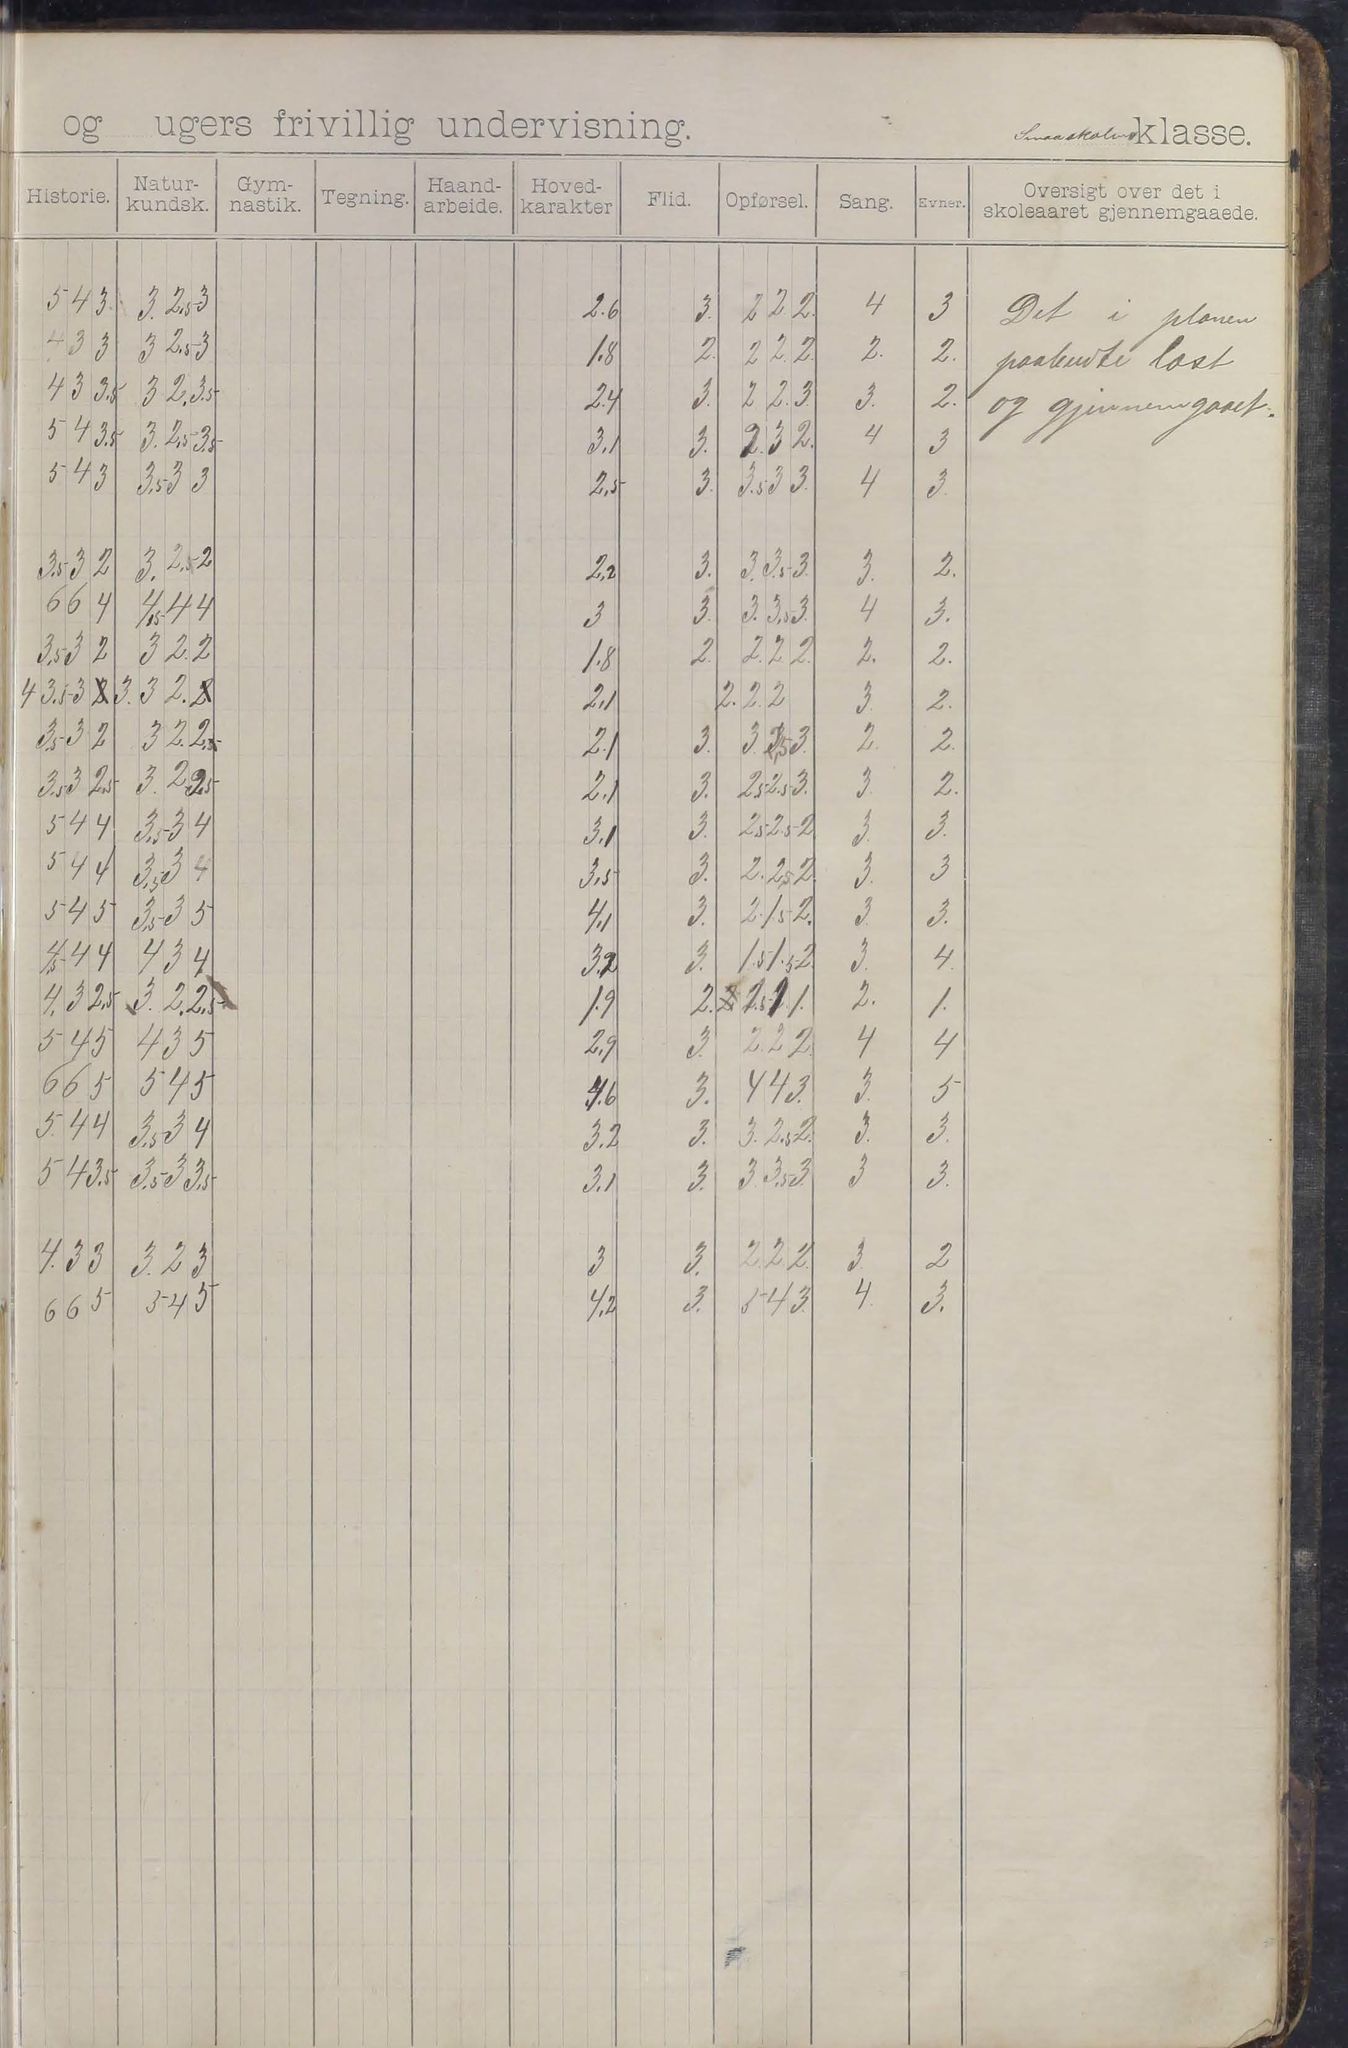 og ugers frivillig undervisning. Smaaskolens klasse.
Historie. Natur-kundsk. Gym-nastik. Tegning. Haand-arbeide. Hoved-karakter Flid. Opførsel. Sang. Evner. Oversigt over det i skoleaaret gjennemgaaede.
5 4 3 3. 2,5 3 2.6 3. 2 2 2. 4 3 Det i planen
4 3 3 3 2,5 3 1.8 2. 2 2 2. 2. 2. paabudte læst
4 3 3,5 3 2. 3,5 2.4 3. 2 2. 3 3. 2. og gjennemgaaet.
5 4 3,5 3. 2,5 3,5 3,1 3. 2 3 2. 4 3
5 4 3 3,5 3 3 2,5 3. 3,5 3 3. 4 3.
3,5 3 2 3. 2,5 2 2,2 3. 3. 3,5 3. 3. 2.
6 6 4 4,5 4 4 3 3. 3. 3,5 3. 4 3.
3,5 3 2 3 2. 2 1.8 2. 2. 2 2. 2. 2.
4 3,5 3 3. 3 2. 2,1 2. 2. 2 3. 2.
3,5 3 2 3 2. 2,5 2.1 3. 3. 3,5 3. 2. 2.
3,5 3 2,5 3. 2 2,5 2,1 3. 2,5 2,5 3. 3. 2.
5 4 4 3,5 3 4 3,1 3. 2,5 2,5 2 3. 3.
5 4 4 3,5 3 4 3,5 3. 2. 2,5 2. 3. 3
5 4 5 3,5 3 5 4,1 3. 2. 1,5 2. 3. 3.
4,5 4 4 4 3 4 3.2 3. 1,5 1,5 2. 3. 4.
4. 3 2,5 3. 2. 2,5 1.9 2. 1,5 1 1. 2. 1.
5 4 5 4 3 5 2,9 3. 2. 2 2. 4 4
6 6 5 5 4 5 4.6 3. 4 4 3. 3. 5
5. 4 4 3,5 3 4 3.2 3. 3. 2,5 2. 3. 3.
5 4 3,5 3,5 3 3,5 3,1 3. 3. 3,5 3. 3 3.
4. 3 3 3. 2 3 3 3. 2. 2 2. 3. 2
6 6 5 5 4 5 4,2 3. 5 4 3. 4. 3.